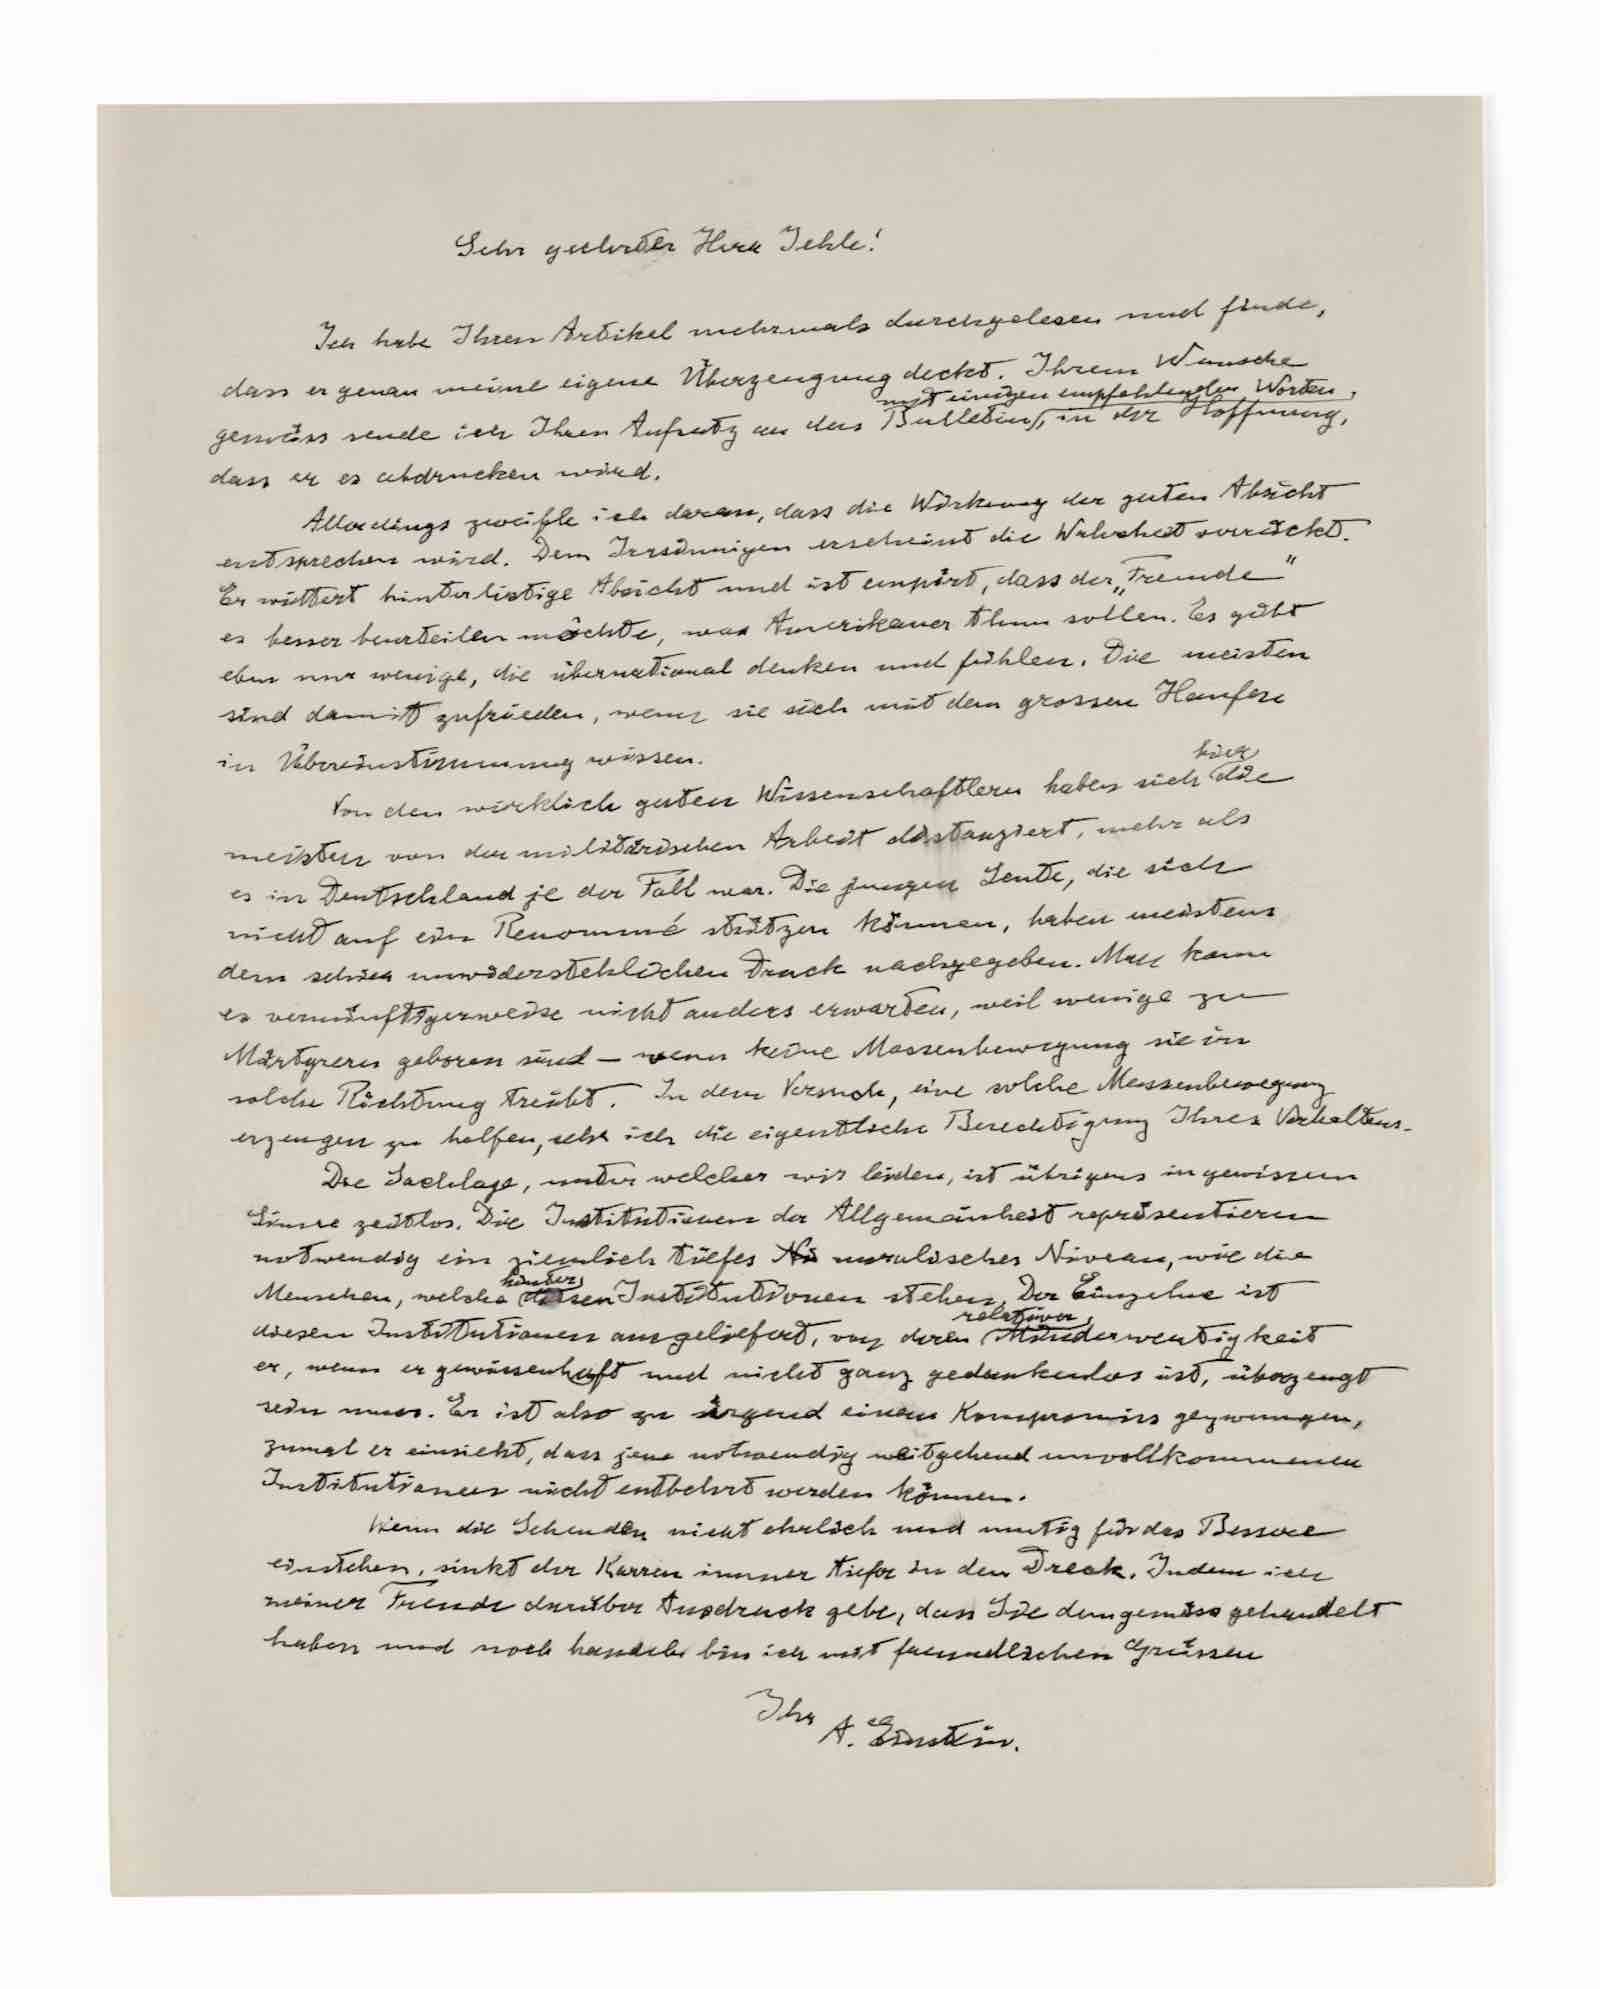 Sehr geehrter Herr Jehle!
Ich habe Ihren Artikel mehrmals durchgelesen und finde,
dass er genau meine eigene Überzeugung deckt. Ihrem Wunsche
mit einigen empfehlenden Worten,
gemäss sende ich Ihren Aufsatz an das Bulletin, in der Hoffnung,
dass er es abdrucken wird.
Allerdings zweifle ich daran, dass die Wirkung der guten Absicht
entsprechen wird. Dem Irrsinnigen erscheint die Wahrheit verrückt.
Er wittert hinterlistige Absicht und ist empört, dass der „Fremde“
es besser beurteilen möchte, was Amerikaner thun sollen. Es gibt
eben nur wenige, die übernational denken und fühlen. Die meisten
sind damit zufrieden, wenn sie sich mit dem grossen Haufen
in Übereinstimmung wissen.
hier
Von den wirklich guten Wissenschaftlern haben sich die
meisten von der militärischen Arbeit distanziert, mehr als
es in Deutschland je der Fall war. Die jungen Leute, die sich
nicht auf ein Renommé stützen können, haben meistens
dem schier unwiderstehlichen Druck nachgegeben. Man kann
es vernünftigerweise nicht anders erwarten, weil wenige zu
Märtyrern geboren sind – wenn keine Massenbewegung sie in
solche Richtung treibt. In dem Versuch, eine solche Massenbewegung
erzeugen zu helfen, sehe ich die eigentliche Berechtigung Ihres Verhaltens.
Die Sachlage, unter welcher wir leiden, ist übrigens in gewissem
Sinne zeitlos. Die Institutionen der Allgemeinheit repräsentieren
notwendig ein ziemlich tiefes Ni moralisches Niveau, wie die
hinter
Menschen, welche diesen Institutionen stehen. Der Einzelne ist
relativer
diesen Institutionen ausgeliefert, von deren Minderwertigkeit
er, wenn er gewissenhaft und nicht ganz gedankenlos ist, überzeugt
sein muss. Er ist also zu irgend einem Kompromiss gezwungen,
zumal er einsieht, dass jene notwendig weitgehend unvollkommenen
Institutionen nicht entbehrt werden können.
Wenn die Sehenden nicht ehrlich und mutig für das Bessere
einstehen, sinkt der Karren immer tiefer in den Dreck. Indem ich
meiner Freude darüber Ausdruck gebe, dass Sie demgemäss gehandelt
haben und noch handeln bin ich mit freundlichen Grüssen
Ihr
A. Einstein.